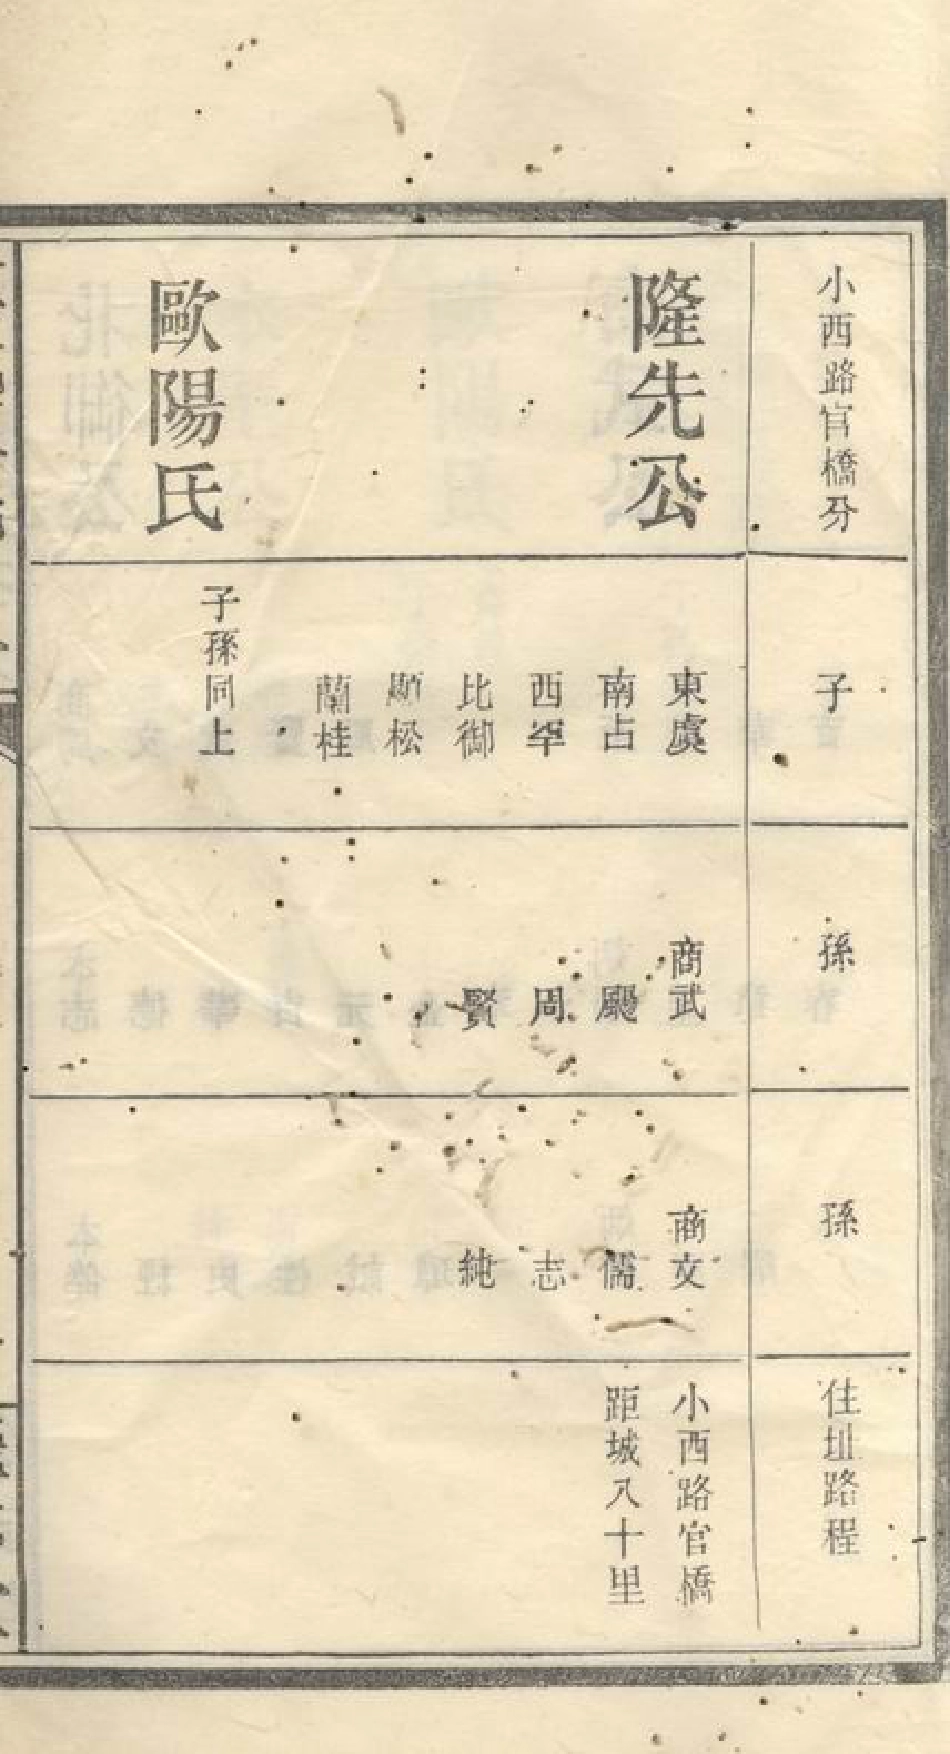 小西路官橋分
子
孫
孫
住址路程
隆先公
東虞
南占
西罕
比御
顯松
蘭桂
商武
颺
周
賢
商文
儒
志
純
小西路官橋
距城八十里
歐陽氏
子孫同上